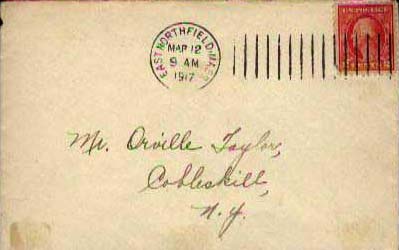 EAST NORTHFIELD, MASS.
MAR 12
9 AM
1917
U.S. POSTAGE
Mr. Orville Taylor,
Cobleskill,
N.Y.